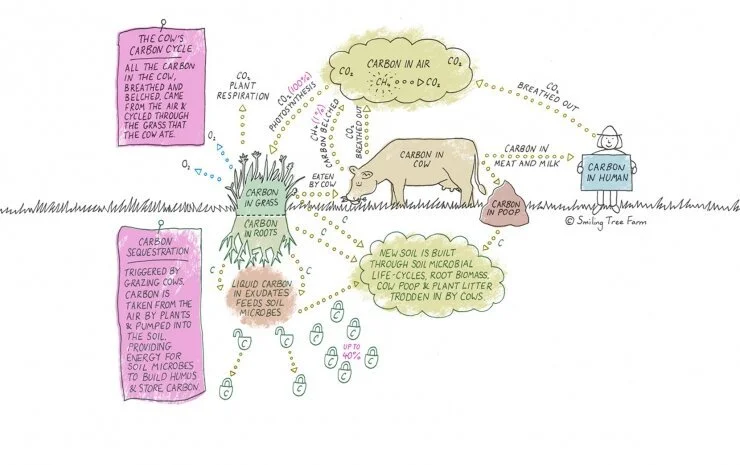 THE COW'S
CARBON CYCLE
ALL THE CARBON
IN THE COW,
BREATHED AND
BELCHED, CAME
FROM THE AIR &
CYCLED THROUGH
THE GRASS THAT
THE COW ATE.
CO₂
PLANT
RESPIRATION
O₂
O₂
CO₂ (100%)
PHOTOSYNTHESIS
CH₄ (1%)
CARBON BELCHED
CO₂
BREATHED OUT
CARBON IN AIR
CO₂
CO₂
CH₄
CO₂
CO₂
BREATHED OUT
CARBON IN
COW
CARBON IN
MEAT AND MILK
CARBON
IN HUMAN
EATEN
BY COW
CARBON
IN GRASS
CARBON
IN ROOTS
CARBON
IN POOP
© Smiling Tree Farm
CARBON
SEQUESTRATION
TRIGGERED BY
GRAZING COWS.
CARBON IS
TAKEN FROM THE
AIR BY PLANTS
& PUMPED INTO
THE SOIL,
PROVIDING
ENERGY FOR
SOIL MICROBES
TO BUILD HUMUS
& STORE CARBON
C
C
C
C
C
LIQUID CARBON
IN EXUDATES
FEEDS SOIL
MICROBES
NEW SOIL IS BUILT
THROUGH SOIL MICROBIAL
LIFE-CYCLES, ROOT BIOMASS,
COW POOP & PLANT LITTER
TRODDEN IN BY COWS.
C
C
C
C
C
C
UP TO
40%
C
C
C
C